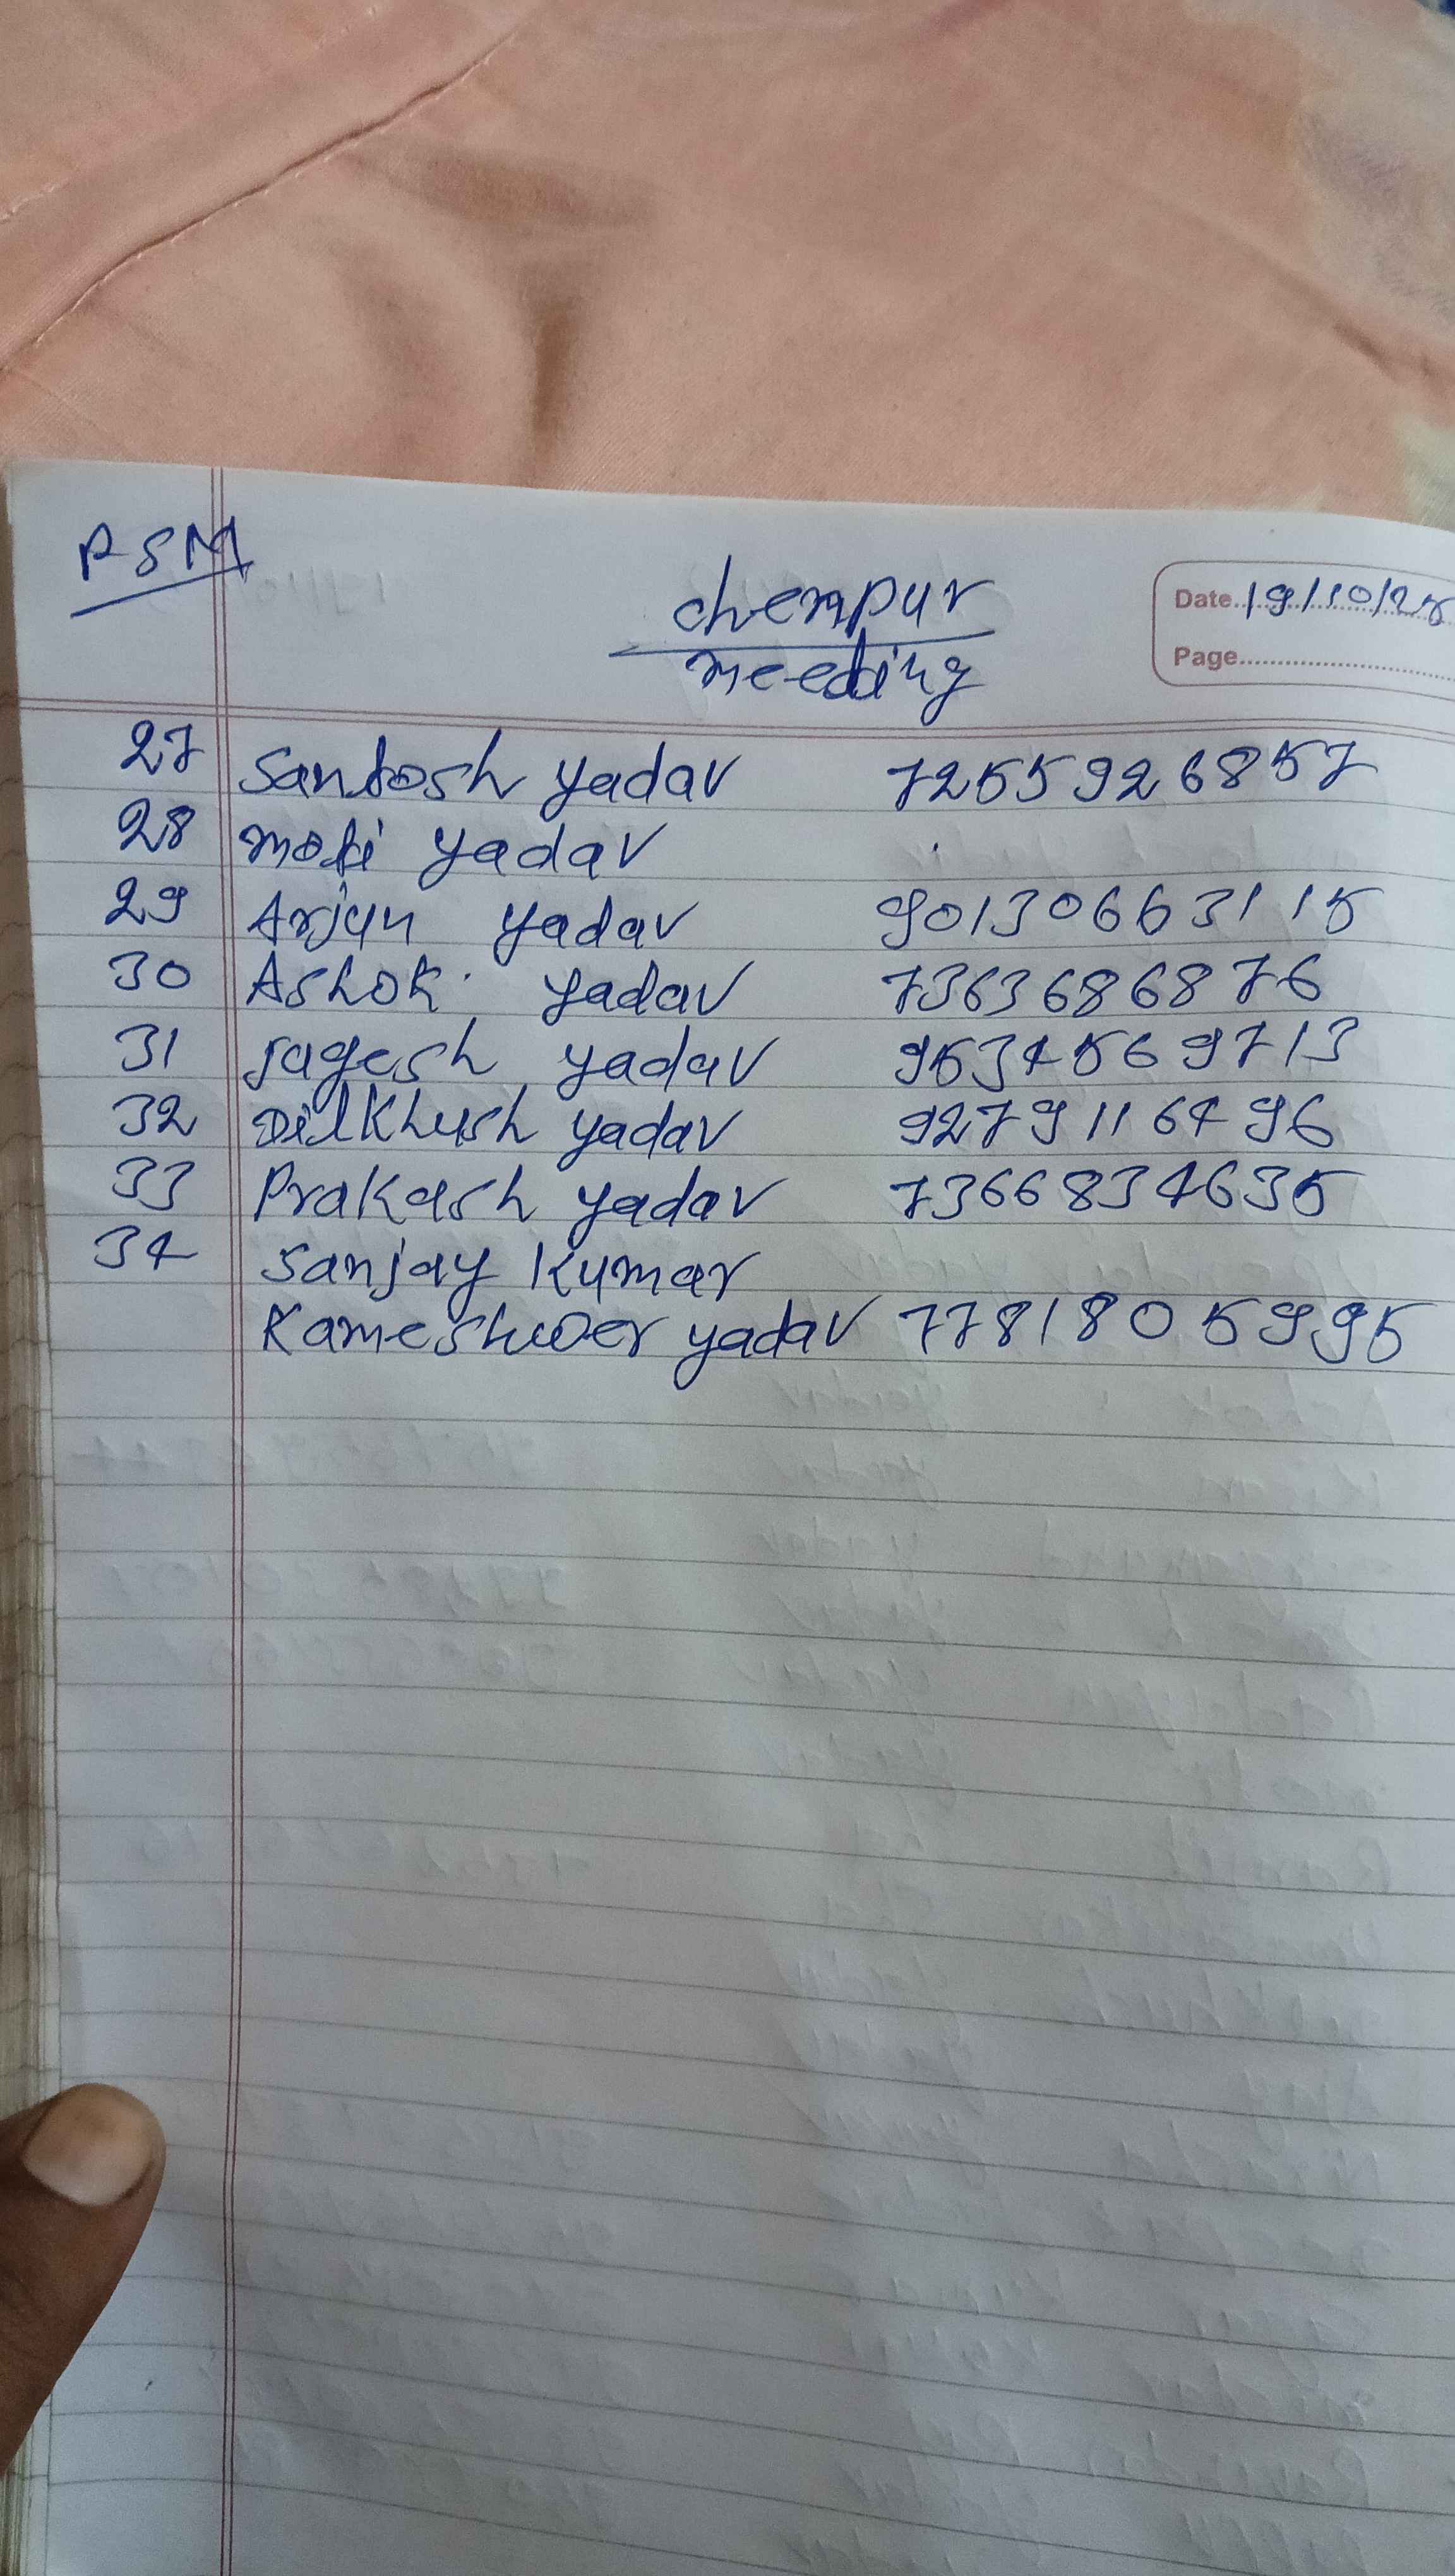 PSM
chenpur
meeting
Date 19/10/25
Page
27 Santosh yadav 7255926857
28 moti yadav
29 Arjun yadav 90130663115
30 Ashok yadav 7363686876
31 ragesh yadav 9534569713
32 Dilkhush yadav 9279116496
33 Prakash yadav 7366834635
34 Sanjay Kumar
Kameshwer yadav 7781805995